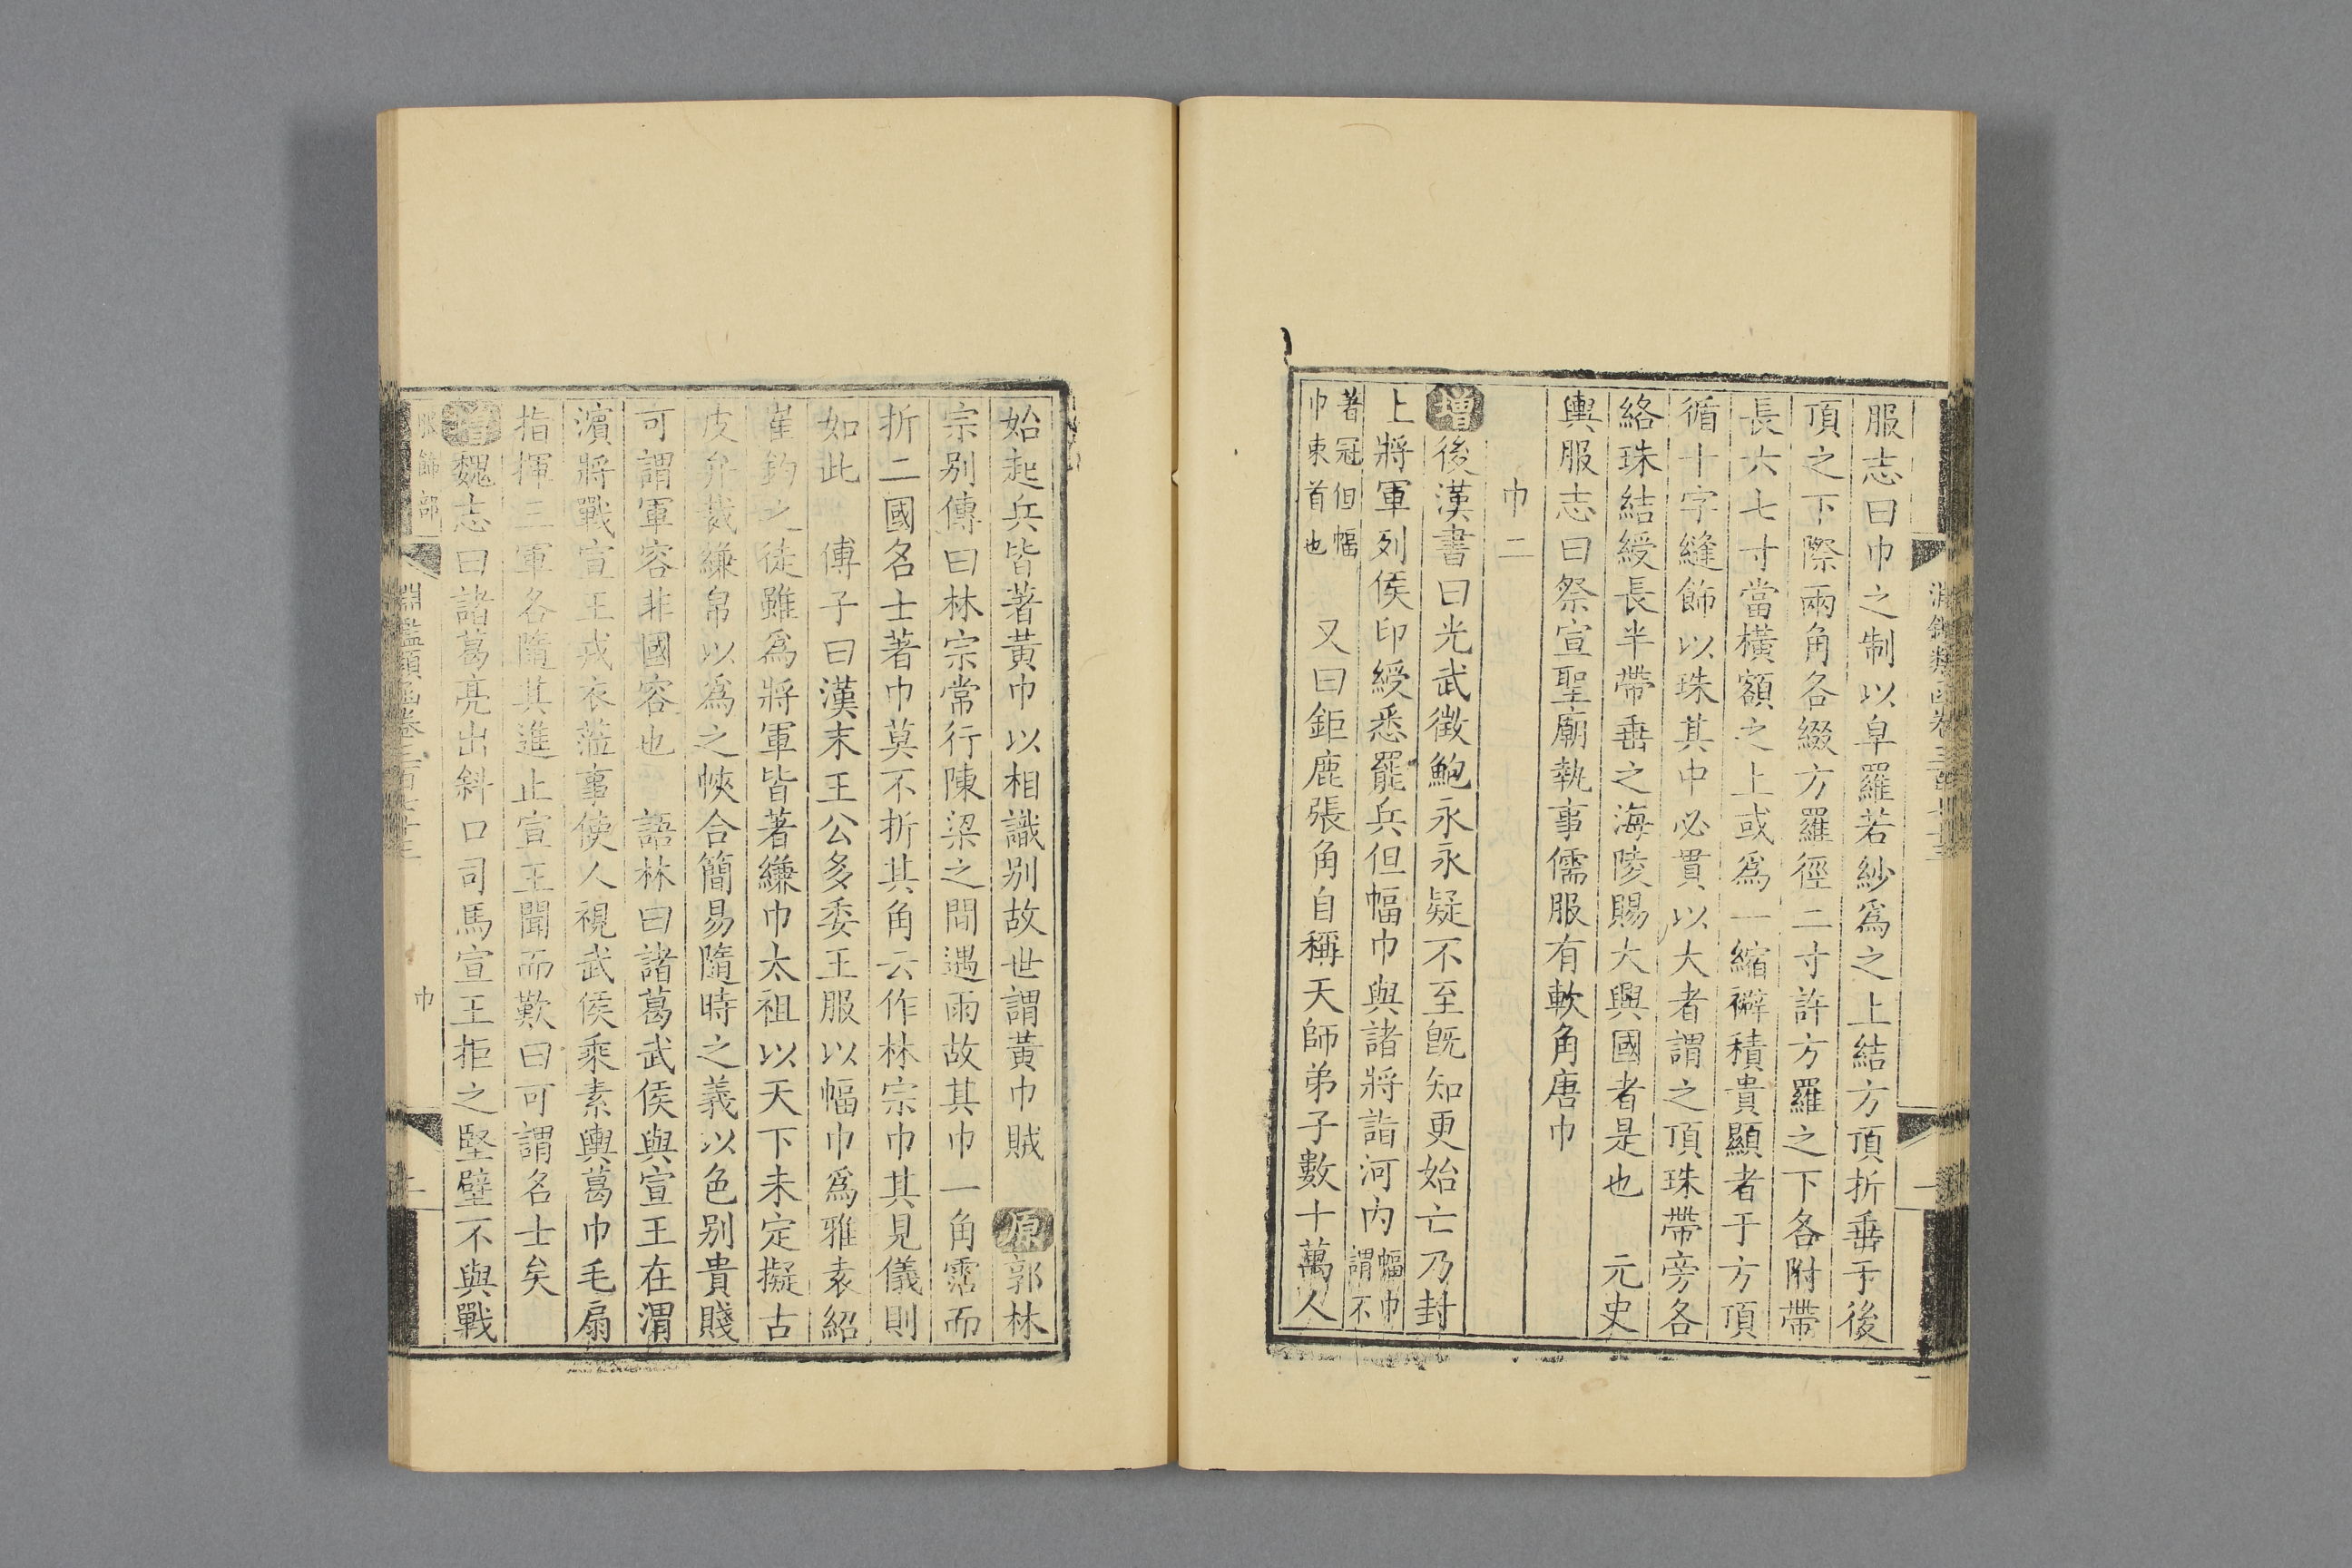 服志曰巾之制以皁羅若紗爲之上結方頂折垂于後
頂之下際兩角各綴方羅徑二寸許方羅之下各附帶
長六七寸當橫額之上或爲一縮襞積貴顯者于方頂
循十字縫飾以珠其中必貫以大者謂之頂珠帶旁各
絡珠結綬長半帶垂之海陵賜大興國者是也 元史
輿服志曰祭宣聖廟執事儒服有軟角唐巾
巾二
增後漢書曰光武徵鮑永永疑不至旣知更始亡乃封
上將軍列侯印綬悉罷兵但幅巾與諸將詣河内幅巾謂不
著冠但幅巾束首也 又曰鉅鹿張角自稱天師弟子數十萬人
始起兵皆著黃巾以相識别故世謂黃巾賊 原郭林
宗别傳曰林宗常行陳梁之間遇雨故其巾一角霑而
折二國名士著巾莫不折其角云作林宗巾其見儀則
如此 傅子曰漢末王公多委王服以幅巾爲雅袁紹
崔鈞之徒雖爲將軍皆著縑巾太祖以天下未定擬古
皮弁裁縑帛以爲之帢合簡易隨時之義以色别貴賤
可謂軍容非國容也 語林曰諸葛武侯與宣王在渭
濱將戰宣王戎衣蒞事使人視武侯乘素輿葛巾毛扇
指揮三軍各隨其進止宣王聞而歎曰可謂名士矣
增魏志曰諸葛亮出斜口司馬宣王拒之堅壁不與戰
服飾部 淵鑑類函卷三百七十三 巾 二